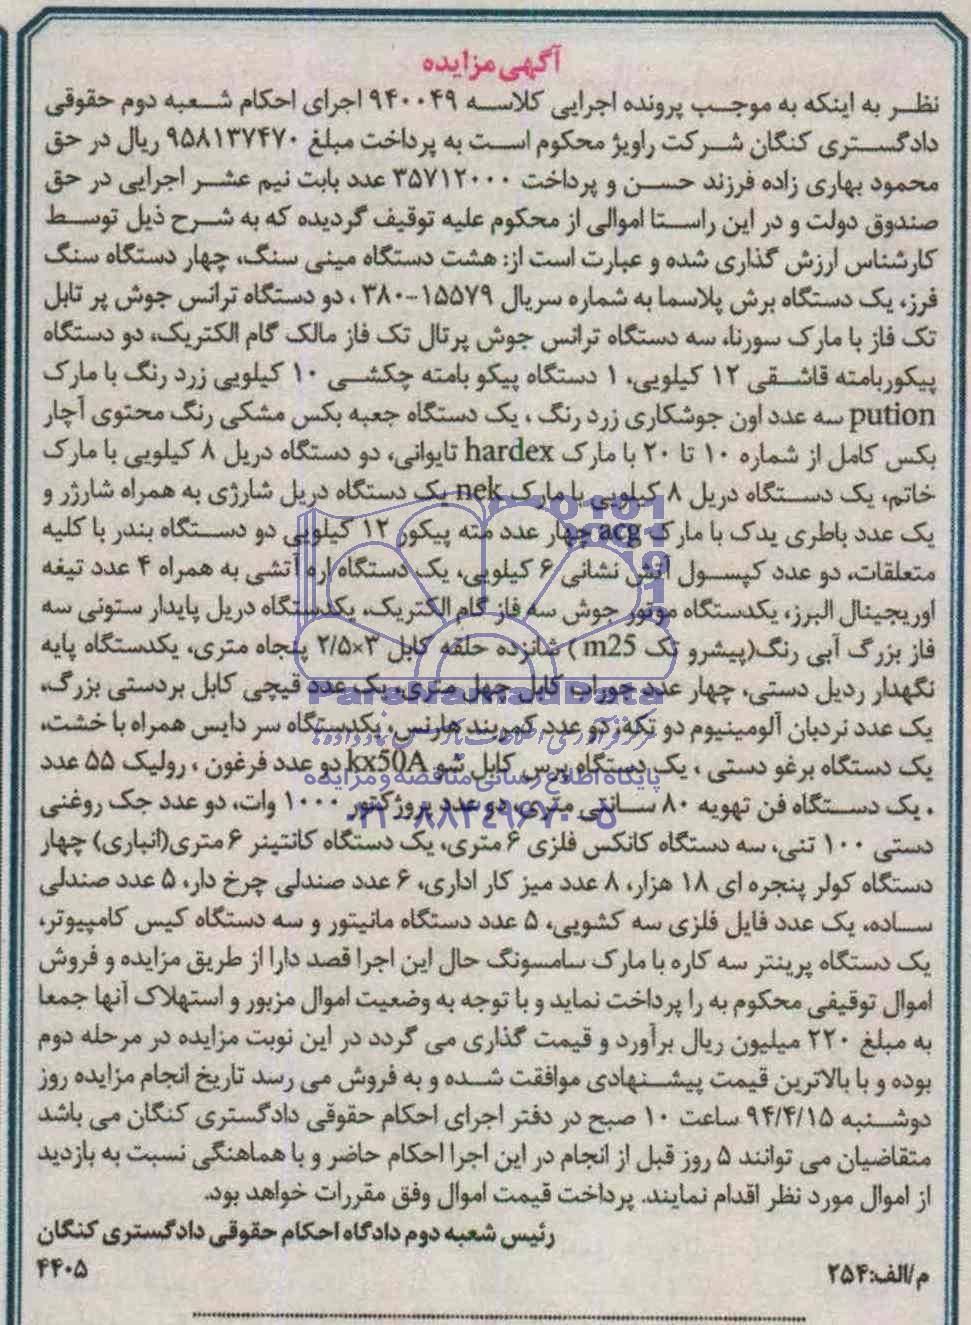 آگهی مزایده
نظر به اینکه به موجب پرونده اجرایی کلاسه ۹۴۰۰۴۹ اجرای احکام شعبه دوم حقوقی
دادگستری کنگان شرکت راویژ محکوم است به پرداخت مبلغ ۹۵۸۱۳۷۴۷۰ ریال در حق
محمود بهاری زاده فرزند حسن و پرداخت ۳۵۷۱۲۰۰۰ عدد بابت نیم عشر اجرایی در حق
صندوق دولت و در این راستا اموالی از محکوم علیه توقیف گردیده که به شرح ذیل توسط
کارشناس ارزش گذاری شده و عبارت است از: هشت دستگاه مینی سنگ، چهار دستگاه سنگ
فرز، یک دستگاه برش پلاسما به شماره سریال ۱۵۵۷۹-۳۸۰ ، دو دستگاه ترانس جوش پر تابل
تک فاز با مارک سورنا، سه دستگاه ترانس جوش پرتال تک فاز مالک گام الکتریک، دو دستگاه
پیکوربامته قاشقی ۱۲ کیلویی، ۱ دستگاه پیکو بامته چکشی ۱۰ کیلویی زرد رنگ با مارک
pution سه عدد اون جوشکاری زرد رنگ ، یک دستگاه جعبه بکس مشکی رنگ محتوی آچار
بکس کامل از شماره ۱۰ تا ۲۰ با مارک hardex تایوانی، دو دستگاه دریل ۸ کیلویی با مارک
خاتم، یک دستگاه دریل ۸ کیلویی با مارک nek یک دستگاه دریل شارژی به همراه شارژر و
یک عدد باطری یدک با مارک acg چهار عدد مته پیکور ۱۲ کیلویی دو دستگاه بندر با کلیه
متعلقات، دو عدد کپسول آتش نشانی ۶ کیلویی، یک دستگاه اره آتشی به همراه ۴ عدد تیغه
اوریجینال البرز، یکدستگاه موتور جوش سه فاز گام الکتریک، یکدستگاه دریل پایدار ستونی سه
فاز بزرگ آبی رنگ(پیشرو تک m25 ) شانزده حلقه کابل ۳×۲/۵ پنجاه متری، یکدستگاه پایه
نگهدار ردیل دستی، چهار عدد جوراب کابل چهل متری، یک عدد قیچی کابل بردستی بزرگ،
یک عدد نردبان آلومینیوم دو تکه، دو عدد کمربند هارنس، یکدستگاه سر دایس همراه با خشت،
یک دستگاه برغو دستی ، یک دستگاه پرس کابل شو kx50A دو عدد فرغون ، رولیک ۵۵ عدد
، یک دستگاه فن تهویه ۸۰ سانتی متری، دو عدد پروژکتور ۱۰۰۰ وات، دو عدد جک روغنی
دستی ۱۰۰ تنی، سه دستگاه کانکس فلزی ۶ متری، یک دستگاه کانتینر ۶ متری(انباری) چهار
دستگاه کولر پنجره ای ۱۸ هزار، ۸ عدد میز کار اداری، ۶ عدد صندلی چرخ دار، ۵ عدد صندلی
ساده، یک عدد فایل فلزی سه کشویی، ۵ عدد دستگاه مانیتور و سه دستگاه کیس کامپیوتر،
یک دستگاه پرینتر سه کاره با مارک سامسونگ حال این اجرا قصد دارا از طریق مزایده و فروش
اموال توقیفی محکوم به را پرداخت نماید و با توجه به وضعیت اموال مزبور و استهلاک آنها جمعا
به مبلغ ۲۲۰ میلیون ریال برآورد و قیمت گذاری می گردد در این نوبت مزایده در مرحله دوم
بوده و با بالاترین قیمت پیشنهادی موافقت شده و به فروش می رسد تاریخ انجام مزایده روز
دوشنبه ۹۴/۴/۱۵ ساعت ۱۰ صبح در دفتر اجرای احکام حقوقی دادگستری کنگان می باشد
متقاضیان می توانند ۵ روز قبل از انجام در این اجرا احکام حاضر و با هماهنگی نسبت به بازدید
از اموال مورد نظر اقدام نمایند. پرداخت قیمت اموال وفق مقررات خواهد بود.
رئیس شعبه دوم دادگاه احکام حقوقی دادگستری کنگان
م/الف:۲۵۴ ۴۴۰۵
ParsNamadData
پایگاه اطلاع رسانی مناقصه و مزایده
۰۲۱-۸۸۳۴۹۶۷۰-۵